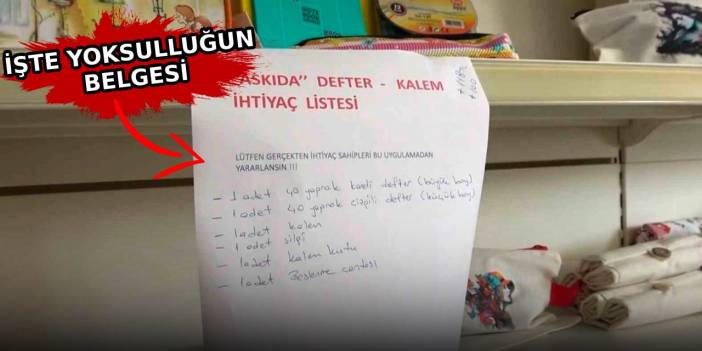 İŞTE YOKSULLUĞUN
BELGESİ
ASKIDA" DEFTER - KALEM
İHTİYAÇ LİSTESİ
LÜTFEN GERÇEKTEN İHTİYAÇ SAHİPLERİ BU UYGULAMADAN
YARARLANSIN !!!
- 1 adet 40 yaprak kareli defter (büyük boy)
- 1 adet 40 yaprak çizgili defter (küçük boy)
- 1 adet kalem
- 1 adet silgi
- 1 adet kalem kutu
- 1 adet Beslenme çantası